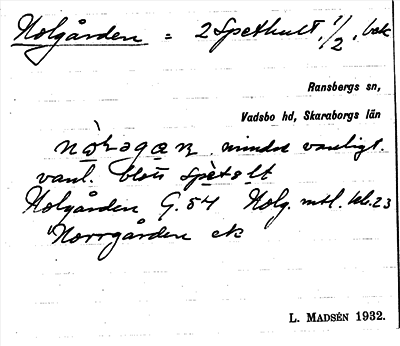 Nolgården = 2 Spethult, 1/2, bek
Ransbergs sn,
Vadsbo hd, Skaraborgs län
mindre vanligt.
vanl. blott spètolt
Nolgården G. 54 Nolg. mtl. kb. 23
"Norrgården ek
L. MADSÉN 1932.